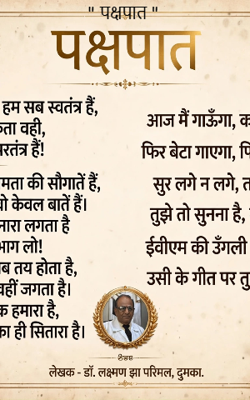 " पक्षपात "
पक्षपात
हम सब स्वतंत्र हैं,
वही,
परतंत्र हैं!
की सौगातें हैं,
केवल बातें हैं।
लगता है
भाग लो!
तय होता है,
वहीं जगता है।
हमारा है,
ही सितारा है।
आज मैं गाऊँगा,
फिर बेटा गाएगा,
सुर लगे न लगे,
तुझे तो सुनना है,
ईवीएम की उँगली
उसी के गीत पर
लेखक - डॉ. लक्ष्मण झा परिमल, दुमका.